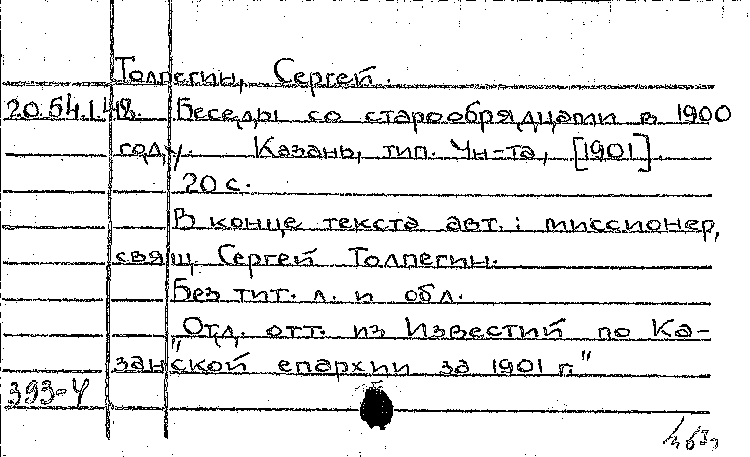 Толпегин, Сергей.
20.54.1.48. Беседы со старообрядцами в 1900
году. Казань, тип. Ун-та, [1901].
20 с.
В конце текста авт.: миссионер,
свящ. Сергей Толпегин.
Без тит. л. и обл.
"Отд. отт. из Известий по Ка-
занской епархии за 1901 г."
393-4